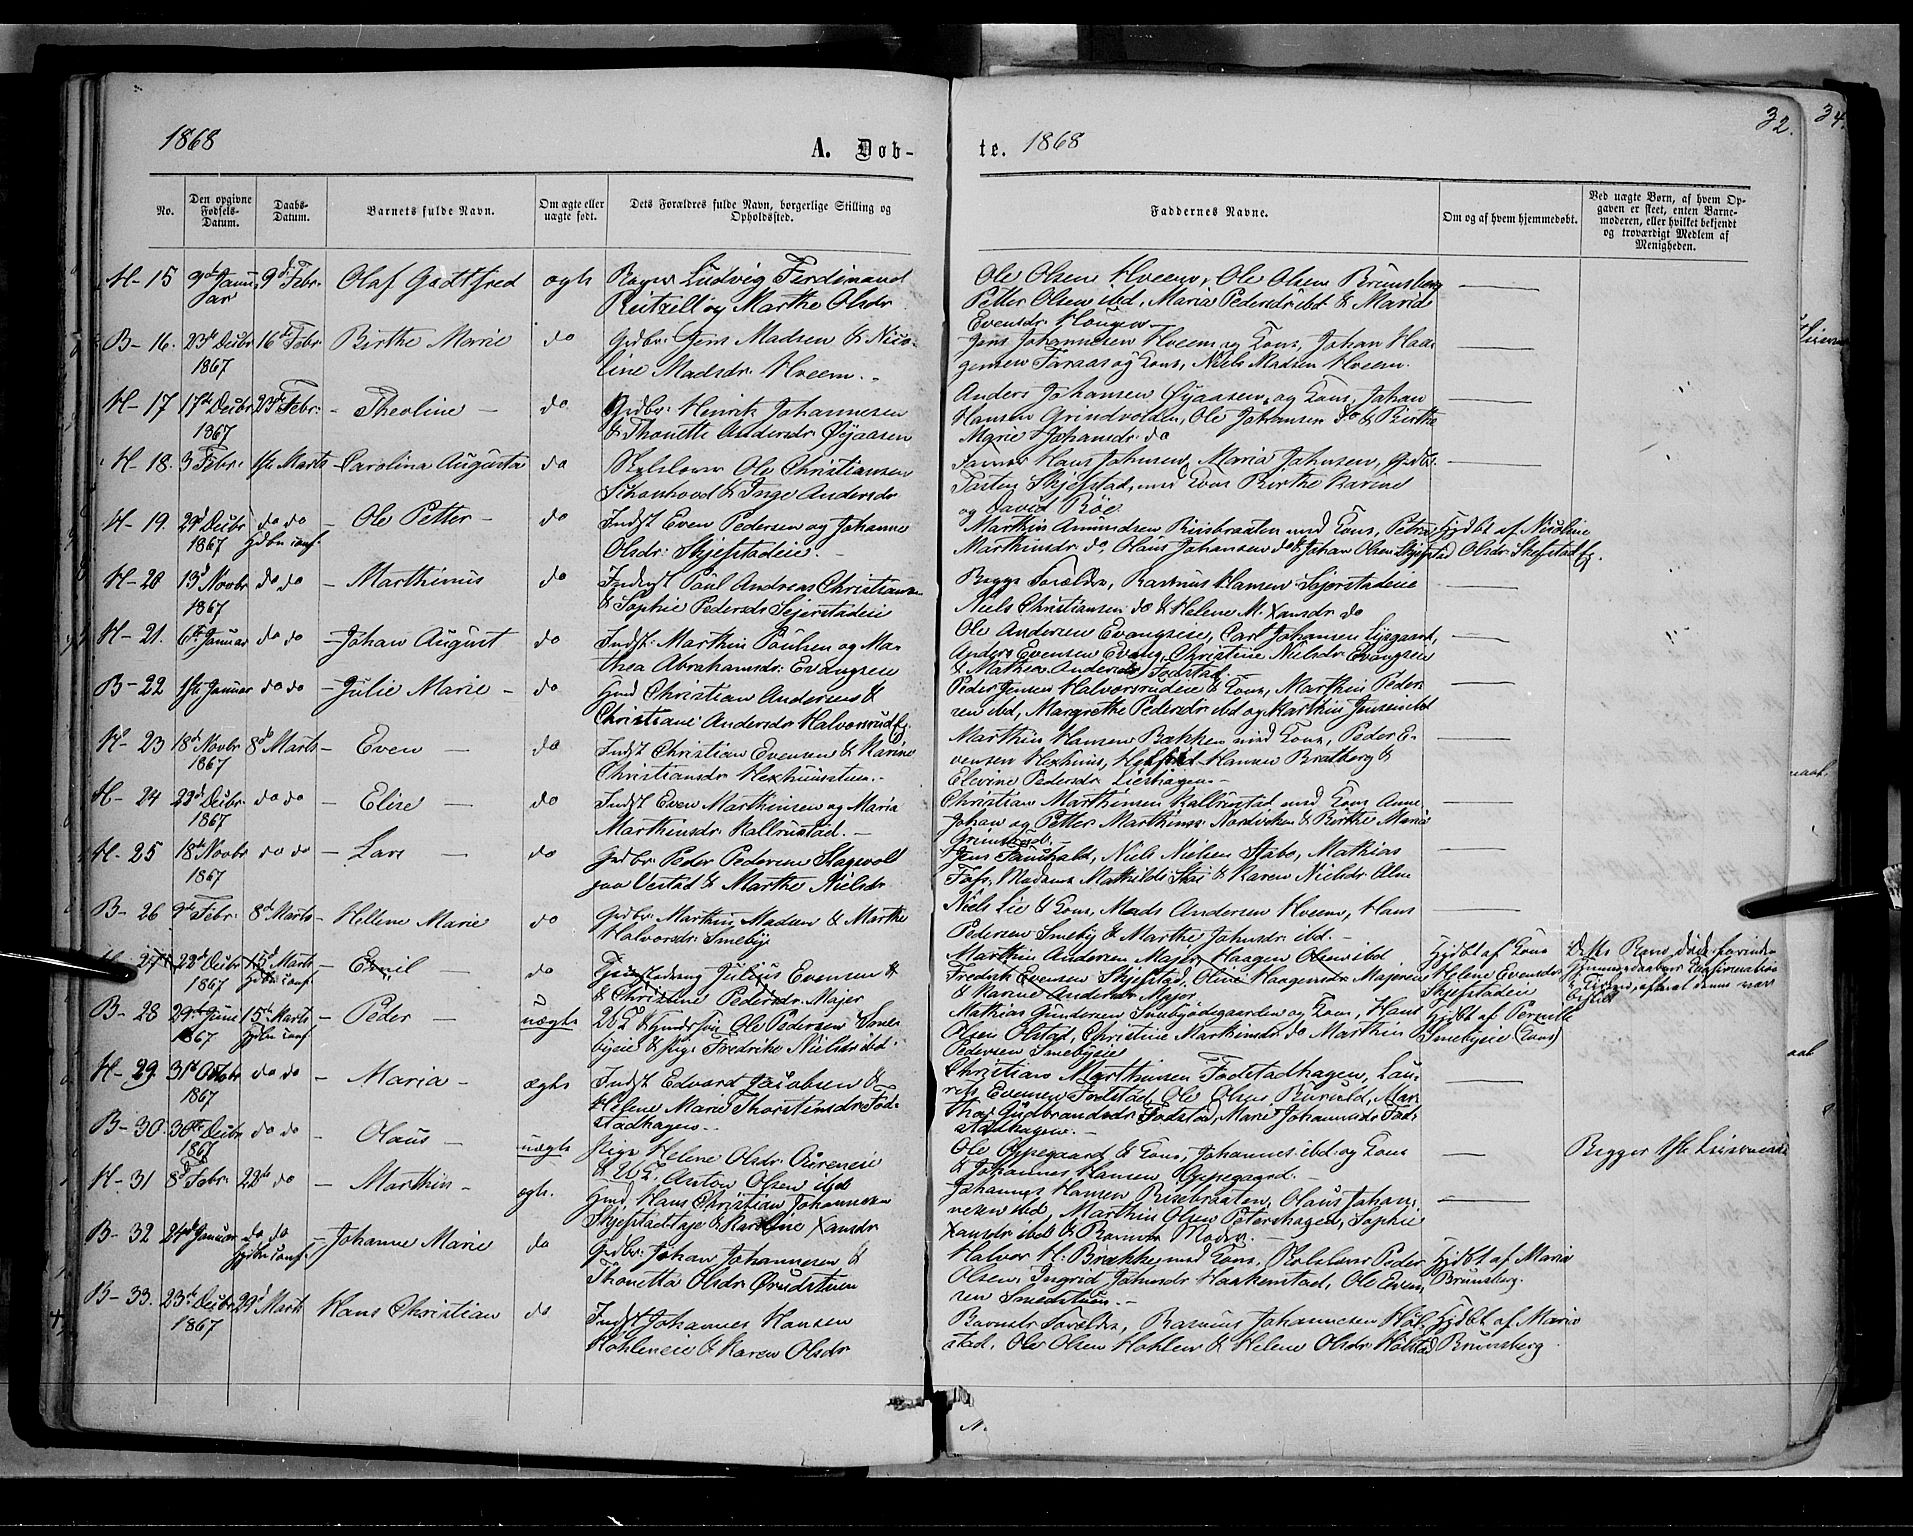 1868
A. Døb-
te. 1868
32.
34.
No.
Den opgivne Fødsels-Datum.
Daabs-Datum.
Barnets fulde Navn.
Om ægte eller uægte født.
Dets Forældres fulde Navn, borgerlige Stilling og Opholdssted.
Faddernes Navne.
Om og af hvem hjemmedøbt.
Ved uægte Børn, af hvem Opgaven er skeet, enten Barnemoderen, eller hvilket bekjendt og troværdigt Medlem af Menigheden.
H- 15 9de Januar 9de Febr. Olaf Gottfred ægte
Ludvig Ferdinand
og Marthe Olsdr
Ole Olsen Hveem, Ole Olsen Brunsberg
Petter Olsen ibd, Maria Pedersdr ibd & Maria
Evensdr. Hougen
B- 16. 23de Decbr 1867 16de Febr. Birthe Marie do
Grdbr. Jens Madsen & Nico-
line Madsdr. Hveem.
Jens Johannesen Hveem og Kone, Johan Haa-
gensen Taraas og Kone, Niels Madsen Hveem.
H- 17 17de Decbr 1867 23de Febr. - Theoline - do
Grdbr. Henrik Johannesen
& Thonette Andersdr. Øyaasen
Anders Johansen Øyaasen og Kone, Johan
Hansen Grindvolden, Ole Johansen do & Birthe
Marie Johansdr. do
H- 18. 3 Febr. 1ste Marts - Carolina Augusta do
Skolelærer Ole Christiansen
& Inge Andersdr
Hans Johnsen, Maria Johnsen, Grdb.
Torsten Skjefstad, med Kone Birthe Karine
og David Røe
H- 19. 29d Decbr 1867 do do hjdbt conf. - Ole Petter - do
Indst Even Pedersen og Johanne
Olsdr. Skjefstadeie -
Marthin Amundsen Riisbraaten med Kone, Petra
Marthinsdr. do, Olaus Johansen do & Johan Olsen Skjefstad
Hjdbt af Nicoline
Olsdr. Skefstad Ej.
H- 20 13d Novbr 1867 do do - Marthinus do
Inderst Paul Andreas Christiansen
& Sophie Pedersdr Sejerstadeie
Begge Forældre, Rasmus Hansen Sejerstadeie
Niels Christiansen do & Helene M. Xansdr. do
H- 21. 6te Januar do do - Johan August do
Indst: Marthin Poulsen og Ma-
thea Abrahamsdr. Evangseie
Ole Andersen Evangseie, Carl Johansen Lysgaard,
Anders Evensen Evang, Christine Nielsdr. Evangseie
& Mathea Andersdr Fodstad.
B- 22 1ste Januar do do - Julie Marie - do
Hmd Christian Andersen &
Christiane Andersdr. Halvorsrud Ej.
Peder Jensen Halvorsrudeie & Kone, Marthin Peder-
sen ibd, Margrethe Pedersdr ibd og Marthin Jensen ibd
H- 23 18d Novbr 1867 8de Marts - Even - do
Indst Christian Evensen & Karine
Christiansdr Hexhuusstuen.-
Marthin Hansen Bakken med Kone, Peder E-
vensen Hexhuus, Hansen Bratberg &
Elevine Pedersdr Liestagen-
H- 24 22d Decbr. 1867 do do - Elise - do
Indst Even Marthinsen og Maria
Marthinsdr. Kallrustad.-
Christian Marthinsen Kallrustad med Kone Anne
Johan og Petter Marthins: Nordviken & Birthe Maria
H- 25 18de Novbr 1867 do do - Lars - do
Grdbr. Peder Pedersen Slagsvold
paa Verstad & Marthe Nielsdr
Jens Fauchald, Niels Nielsen Stabo, Mathias
Fos, Madame Mathilde Stai & Karen Nielsdr Alm
B- 26 9de Febr. 8de Marts - Hellene Marie do
Grdbr: Marthin Madsen & Marthe
Halvorsdr. Smeby
Niels Lie & Kone, Mads Andersen Hveem, Hans
Pedersen Smeby & Marthe Johnsdr ibd.-
H- 27 22d Decbr 1867 15d Marts hjdbt conf. - Emil - do
Julius Evensen &
& Christine Pedersdr. Majer
Marthin Andersen Majer, Haagen Olsen ibd
Fredrik Evensen Skjefstad, Oline Haagensdr Majereie
& Karine Andersdr Majer
Hjdbt af Kone
Helene Evensdr.
Skjefstadeie
Dette Barn døde forinden
Hjemmedaabens Confirmation
B- 28 29de Juni 1867 15de Marts hjdbt conf. - Peder - uægte
& Gaardsøn Ole Pedersen Sme-
byeie & Pige Fredrike Nielsdr ibd.
Mathias Gundersen Smebyødegaarden og Kone, Hans
Olsen Olstad, Christine Marthinsdr do Marthin
Pedersen Smebyeie
Hjdbt af Pernille
Smebyeie (Kone)
H- 29. 31te Octbr 1867 do do - Maria - ægte
Indst Edvard Jacobsen &
Helene Marie Thorstensdr. Fod-
stadhagen-
Christian Marthinsen Fodstadhagen, Lau-
rits Evensen Fodstad, Ole Olsen Buruld, Mar-
thea Gudbrandsdr Fodstad, Marie Johannesdr Fod-
stadhagen.-
B- 30. 30te Decbr 1867 do do - Olaus - uægte
Pige Helene Olsdr.
& Anton Olsen ibd
Ole Oppegaard & Kone, Johannes ibd og Kone
& Johannes Hansen Oppegaard.
Begger 1ste Leiermaal
H- 31 8de Febr. 22de do - Marthin - ægte.
Hmd. Hans Christian Johannesen
& Karoline Xansdr
Johannes Hansen Risebraaten, Olaus Johan-
nesen ibd, Marthin Olsen Petershagen, Sophie
Xansdr ibd & Barnets Moder.-
B- 32 24d Januar do do hjdbt conf. - Johanne Marie do
Grdbr: Johan Johannesen &
Thonetta Olsdr. Ørudstuen
Halvor H. Brakke med Kone, Skolelærer Peder
Olsen, Ingrid Johnsdr. Haakenstad, Ole Even-
sen Smedstuen.-
Hjdbt af Maria
Brunsberg.
B- 33. 23de Decbr 1867 29d Marts Hans Christian do
Indst Johannes Hansen
Kohleneie & Karen Olsdr
Barnets Forældre, Rasmus Johannesen Hol-
stad, Ole Olsen Kohlen & Helene Olsdr. Holstad
Hjdbt af Maria
Brunsberg